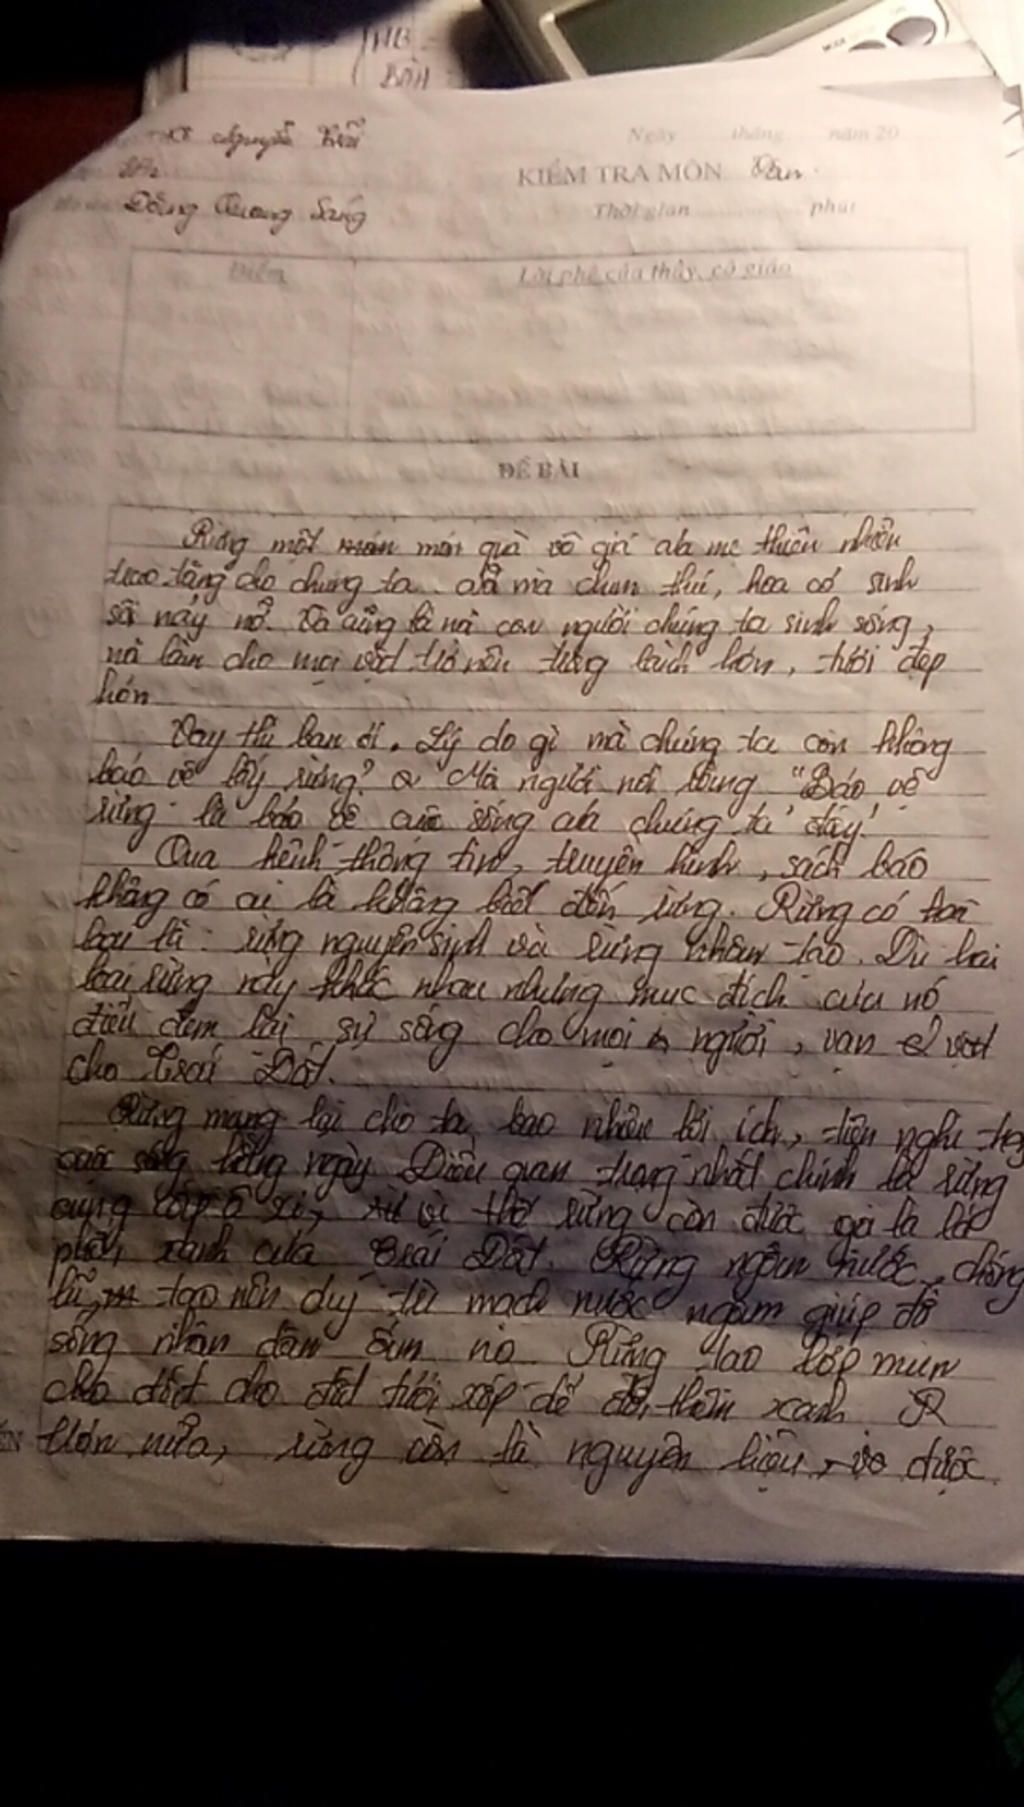 HB
BÀH
Nguyễn Trãi
Ngày tháng năm 20
KIỂM TRA MÔN Văn
Đồng Quang Sáng
Thời gian phút
Điểm
Lời phê của thầy, cô giáo
ĐỀ BÀI
Rừng một món quà vô giá của mẹ thiên nhiên
trao tặng cho chúng ta. mà chim thú, hoa cỏ sinh
sôi nảy nở. Và cũng là nơi con người chúng ta sinh sống,
nó làm cho mọi vật trở nên trong lành hơn, tươi đẹp
hơn
Vậy thì bạn ơi. Lý do gì mà chúng ta còn không
bảo vệ lấy rừng? Mà người nói rằng "Bảo vệ
rừng là bảo vệ cuộc sống của chúng ta" đấy!
Qua kênh thông tin, truyền hình, sách báo
không có ai là không biết đến rừng. Rừng có hai
loại là: rừng nguyên sinh và rừng nhân tạo. Dù hai
loại rừng này khác nhau nhưng mục đích của nó
điều đem lại sự sống cho mọi người, vạn vật
cho Trái Đất.
Rừng mang lại cho ta bao nhiêu lợi ích, tiện nghi
cuộc sống hằng ngày Điều quan trọng nhất chính là rừng
cung cấp ô xi, vì thế rừng còn được gọi là lá
phổi xanh của Trái Đất. Rừng ngăn nước, chống
lũ, tạo nên duy trì mạch nước ngầm giúp đời
sống nhân dân ấm no. Rừng tạo lớp mùn
cho đất cho đất tươi xốp để đời thêm xanh R
Hơn nữa, rừng còn là nguyên liệu, dược